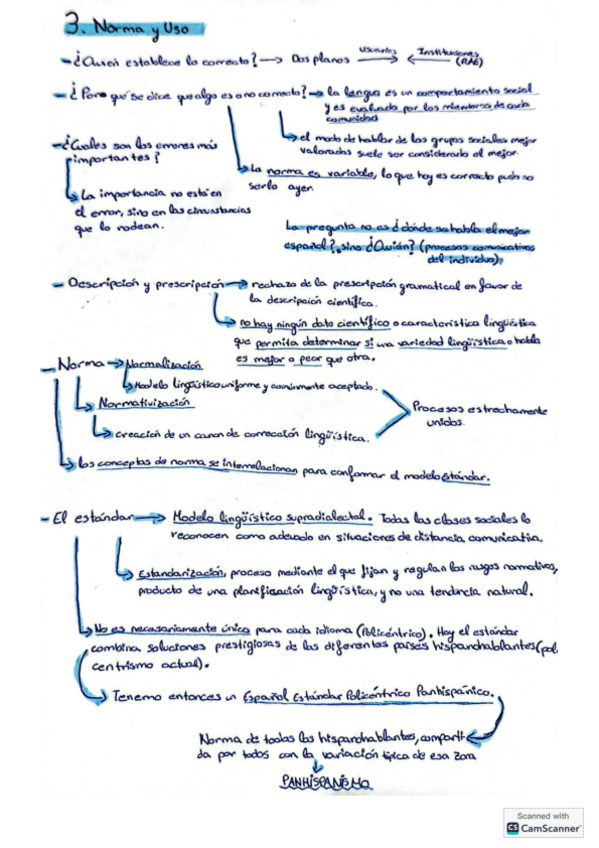 3. Norma y Uso
- ¿Quién establece lo correcto? → Dos planos Usuarios → ← Instituciones (RAE)
- ¿Por qué se dice que algo es o no correcto? → la lengua es un comportamiento social
y es evaluado por los miembros de cada
comunidad
→ el modo de hablar de los grupos sociales mejor
valorados suele ser considerado el mejor.
→ La norma es variable, lo que hoy es correcto pudo no
serlo ayer.
- ¿Cuáles son los errores más
importantes?
→ La importancia no está en
el error, sino en las circunstancias
que lo rodean.
La pregunta no es ¿dónde se habla el mejor
español?, sino ¿Quién? (procesos comunicativos
del individuo).
- Descripción y prescripción → rechazo de la prescripción gramatical en favor de
la descripción científica.
→ no hay ningún dato científico o característica lingüística
que permita determinar si una variedad lingüística o habla
es mejor o peor que otra.
- Norma → Normalización
→ Modelo lingüístico uniforme y comúnmente aceptado.
→ Normativización
→ creación de un canon de corrección lingüística.
Procesos estrechamente
unidos.
→ Los conceptos de norma se interrelacionan para conformar el modelo estándar.
- El estándar → Modelo lingüístico supradialectal. Todas las clases sociales lo
reconocen como adecuado en situaciones de distancia comunicativa.
→ Estandarización, proceso mediante el que fijan y regulan los rasgos normativos,
producto de una planificación lingüística, y no una tendencia natural.
→ No es necesariamente único para cada idioma (Policéntrico). Hoy el estándar
combina soluciones prestigiosas de los diferentes países hispanohablantes (poli
centrismo actual).
→ Tenemo entonces un Español Estándar Policéntrico Panhispánico.
Norma de todos los hispanohablantes, comparti
da por todos con la variación típica de esa zona
↓
PANHISPANISMO.
Scanned with
CS CamScanner